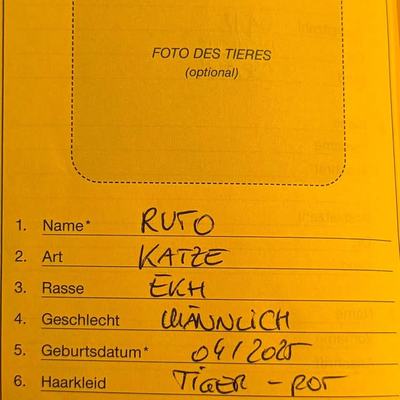 FOTO DES TIERES
(optional)
1. Name* RUTO
2. Art KATZE
3. Rasse EKH
4. Geschlecht MÄNNLICH
5. Geburtsdatum* 04/2025
6. Haarkleid TIGER - ROT